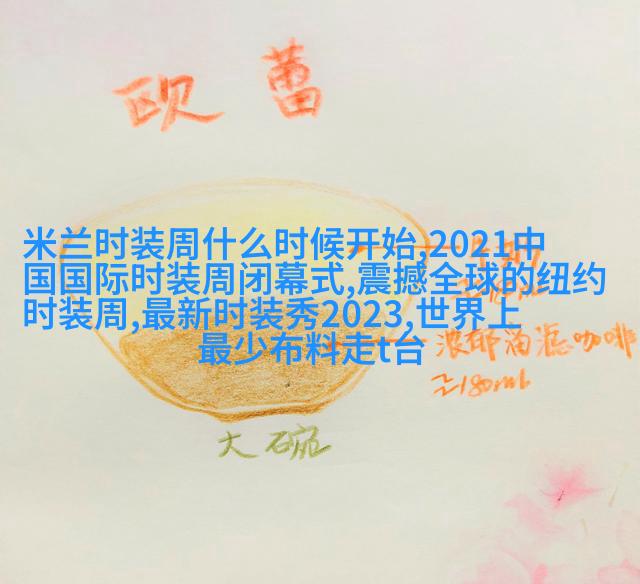 欧蕾
米兰时装周什么时候开始,2021中
国国际时装周闭幕式,震撼全球的纽约
时装周,最新时装秀2023,世界上
最少布料走t台
浓郁滴滤咖啡
≥180ml
大碗